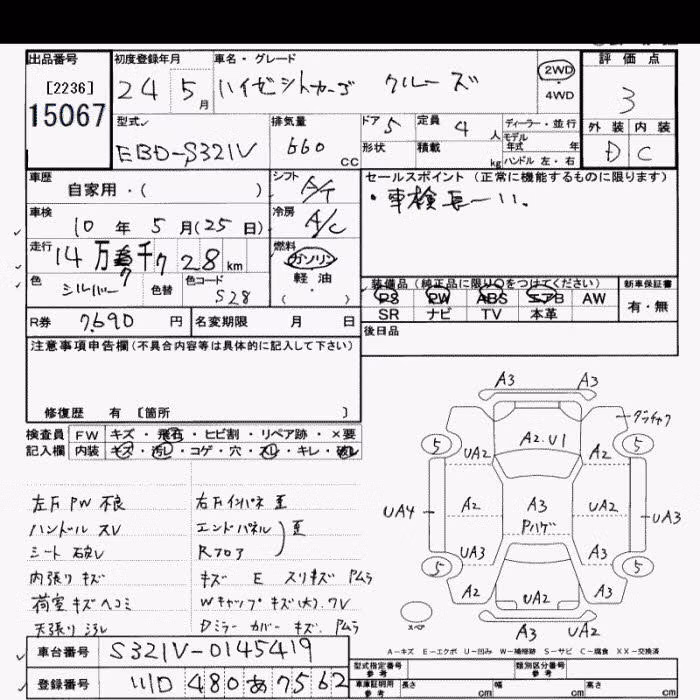 出品番号
[2236]
15067
初度登録年月
24 5月
車名・グレード
ハイゼットカーゴ クルーズ
2WD
・
4WD
評価点
3
外装 内装
D C
型式
EBD-S321V
排気量
660 CC
ドア 5
形状
定員 4 人
積載 kg
ディーラー・並行
モデル年式 年
ハンドル 左・右
車歴
自家用・( )
シフト A/T
セールスポイント (正常に機能するものに限ります)
・車検長ーい.
車検
10年 5月(25日)
冷房 A/C
走行
14万 千7728km
燃料
ガソリン
軽油
( )
色
シルバー
色替
色コード
S28
装備品(純正品に限り○をつけてください)
PS PW ABS エアB AW
SR ナビ TV 本革
新車保証書
有・無
R券 7,690 円
名変期限 月 日
後日品
注意事項申告欄(不具合内容等は具体的に記入して下さい)
修復歴 有 [箇所 ]
検査員記入欄
FW キズ・飛石・ヒビ割・リペア跡・×要
内装 キズ・汚レ・コゲ・穴・スレ・キレ・破レ
左前PW不良
ハンドル スレ
シート 破レ
内張り キズ
荷室キズヘコミ
天張り
右前インパネ
エンドパネル
Rフロア
キズ E スリキズ Pムラ
Wキャップ キズ(大).ワレ
Dミラーカバー キズ. Pムラ
A3 A3
5 UA2 A2.U1 A2 5
UA4 A2 A3 Pハゲ UA2 UA3
5 UA3 A3 5
A2 UA2 A2
スペア
A3 UA2
A-キズ E-エクボ U-凹み W-補修跡 S-サビ C-腐食 XX-交換済
車台番号 S321V-0145419
登録番号 480あ7562
型式指定番号 参考
類別区分番号 参考
車庫証明用 参考 長さ cm 幅 cm 高さ cm